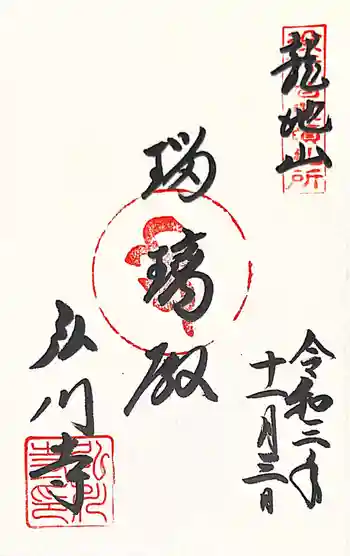 龍池山
令和三年
十一月三日
瑠璃殿
弘川寺